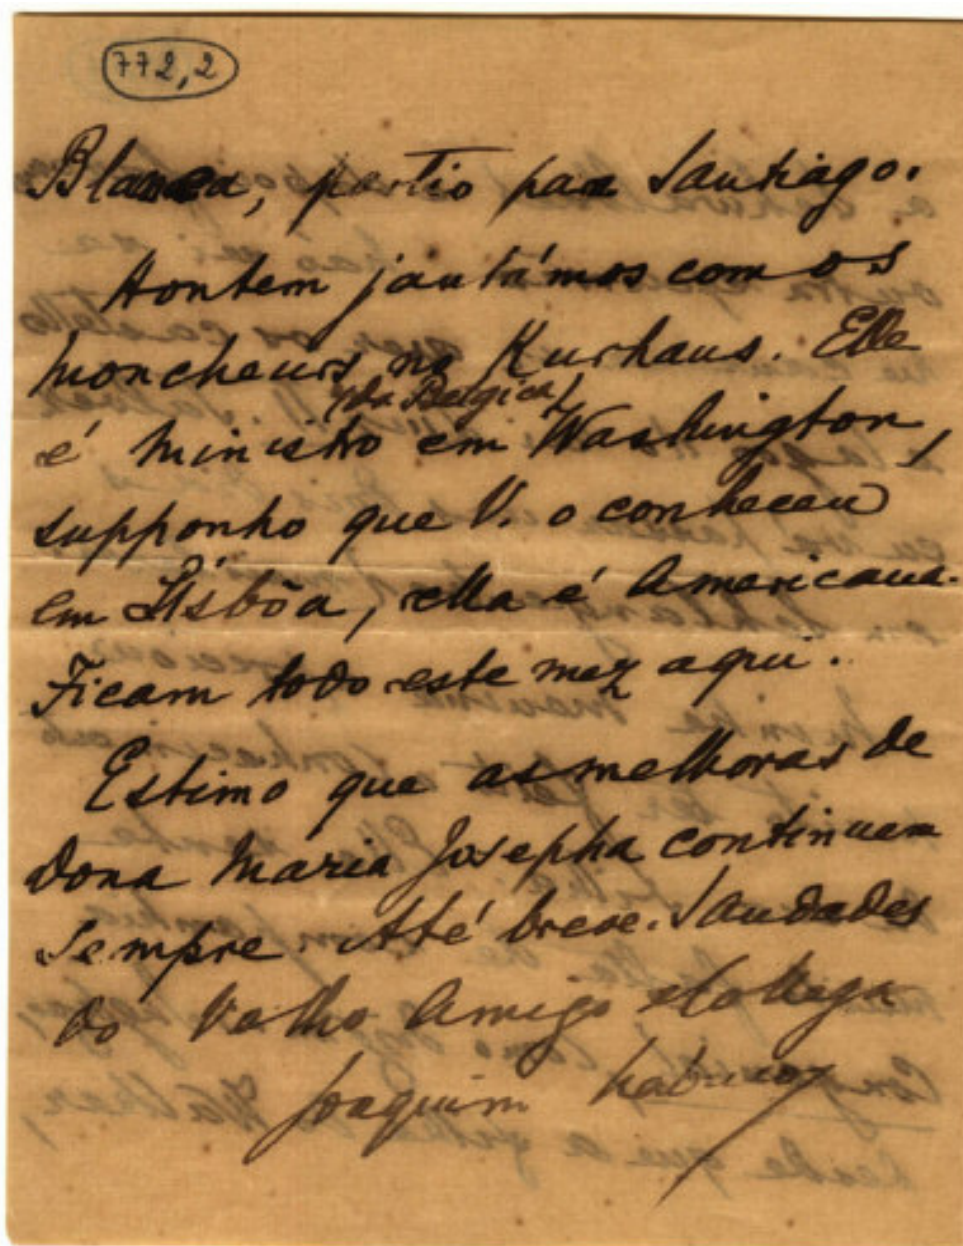 772,2
Blanca, partio para Santiago.
Hontem jantámos com os
Moncheurs no Kurhaus. Elle
(da Belgica)
é ministro em Washington,
supponho que V. o conheceu
em Lisbôa, ella é Americana.
Ficam todo este mez aqui.
Estimo que as melhoras de
Dona Maria Josepha continuem
sempre. Até breve. Saudades
do Velho Amigo e Collega
Joaquim Nabuco